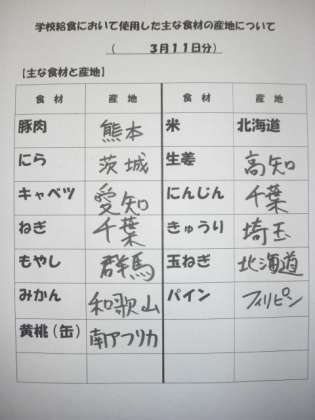 学校給食において使用した主な食材の産地について
（　　　3月11日分）
【主な食材と産地】
食材　産地　食材　産地
豚肉　熊本　米　北海道
にら　茨城　生姜　高知
キャベツ　愛知　にんじん　千葉
ねぎ　千葉　きゅうり　埼玉
もやし　群馬　玉ねぎ　北海道
みかん　和歌山　パイン　フィリピン
黄桃（缶）　南アフリカ